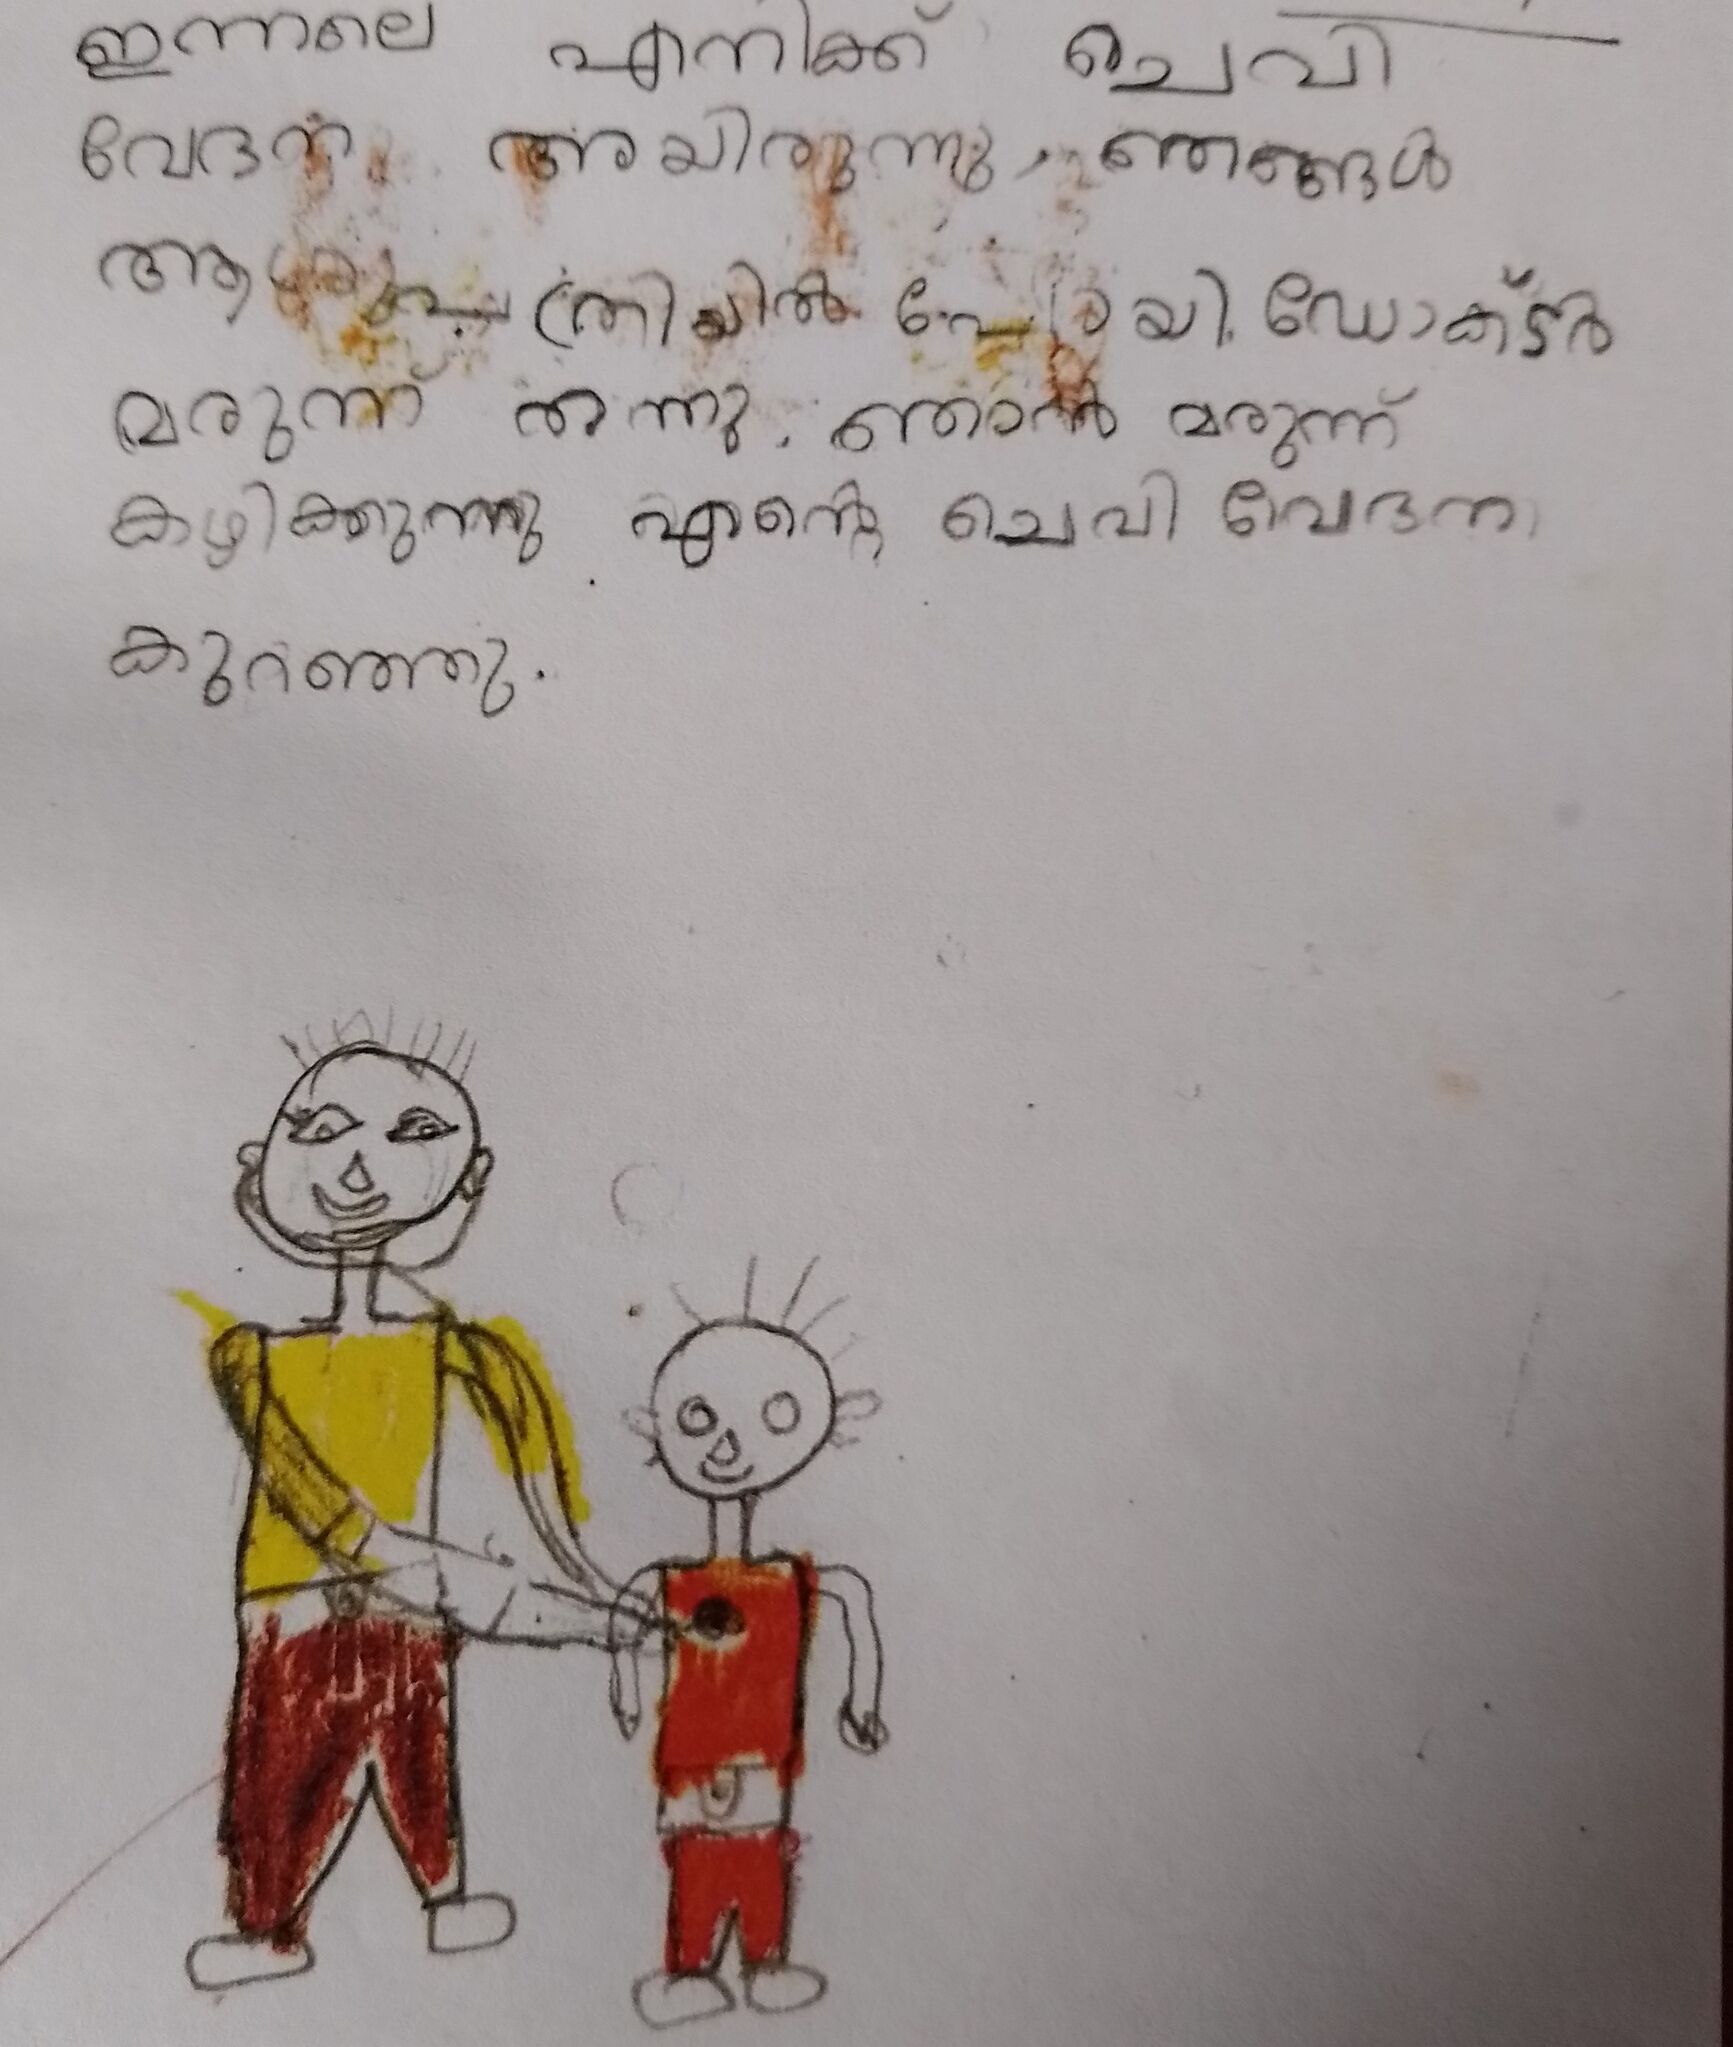 ഇന്നാലെ എനിക്ക് ചെവി
വേദന അയിരുന്നു. ഞങ്ങൾ
ആശുപത്രിയിൽ പോയി. ഡോക്ടർ
മരുന്ന് തന്നു. ഞാൻ മരുന്ന്
കഴിക്കുന്നു എന്റെ ചെവി വേദന
കുറഞ്ഞു.